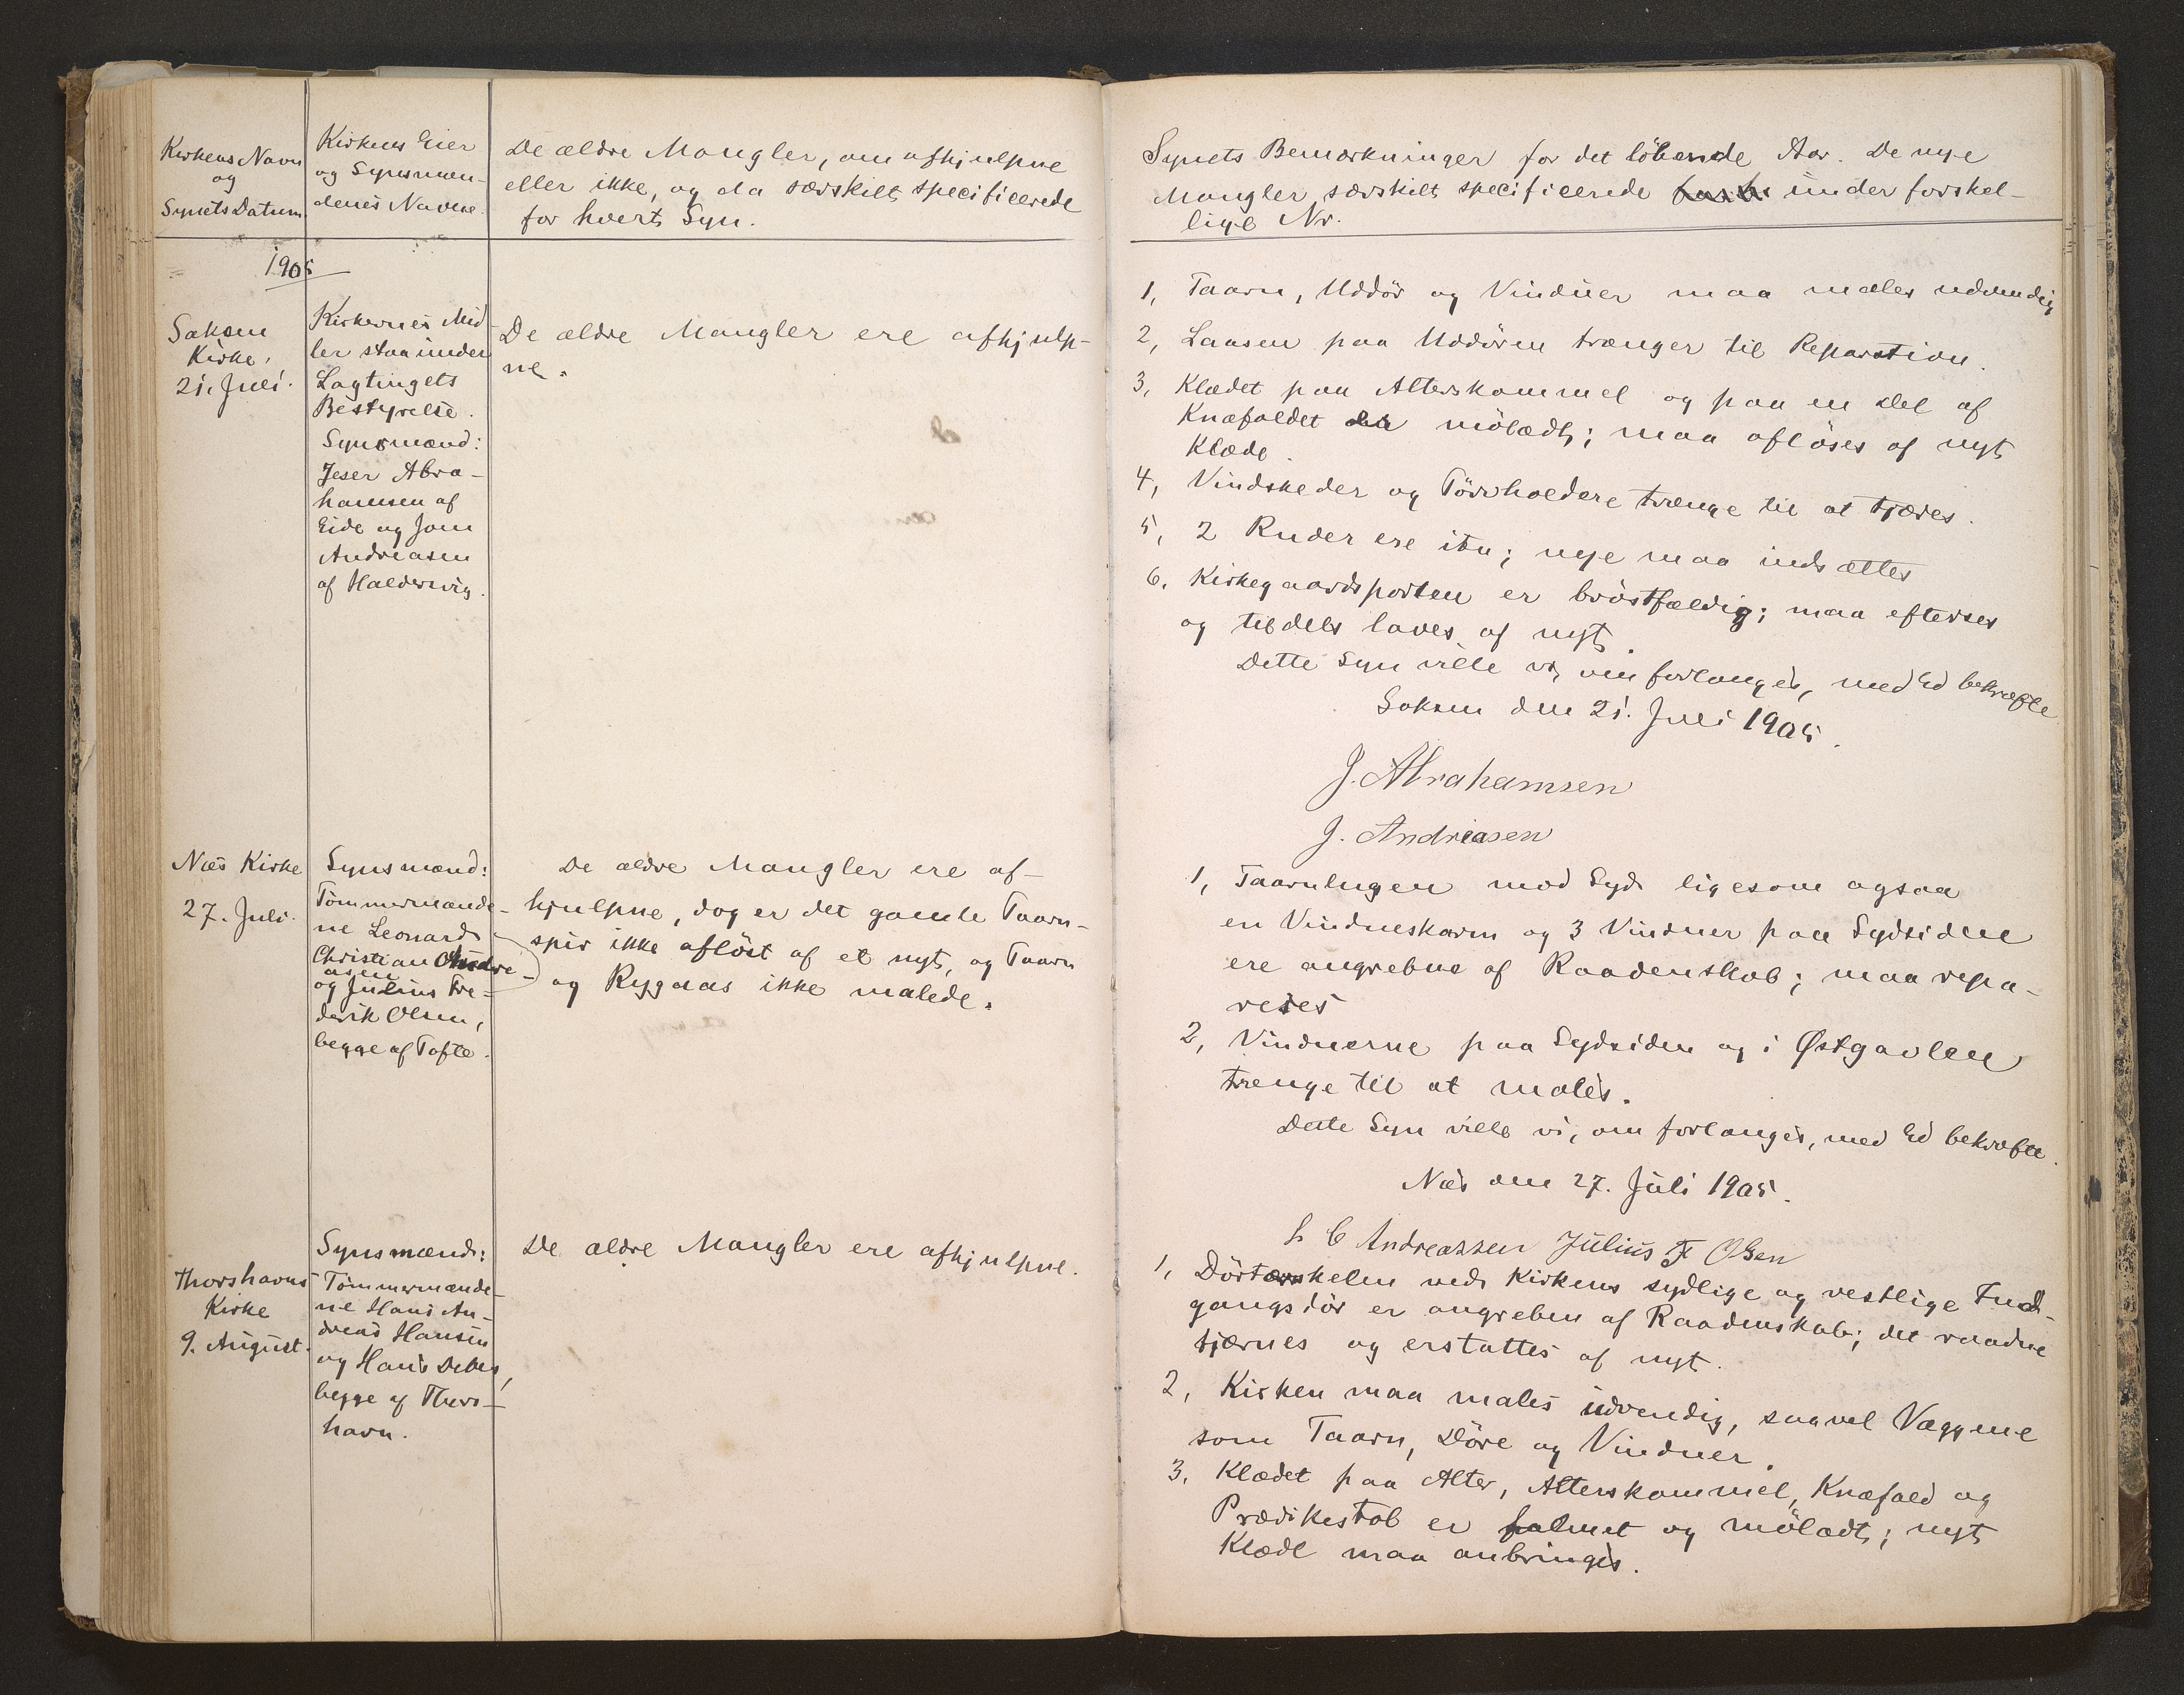 Kirkens Navn
og
Synets Datum
Kirkens Eier
og Synsmæn-
denes Navne.
De ældre Mangler, om afhjulpne
eller ikke, og da særskilt specificerede
for hvert Syn.
1905
Saksen
Kirke,
21. Juli.
Kirkernes Mid
ler staa under
Lagtingets
Bestyrelse.
Synsmænd:
Jeser Abra-
hamsen af
Eide og Joen
Andreasen
af Haldersvig.
De ældre Mangler ere afhjulp-
ne.
Næs Kirke
27. Juli.
Synsmænd:
Tömmermænde-
ne Leonard
Christian Andre-
asen
og Julius Fre-
derik Olsen,
begge af Tofte.
De ældre Mangler ere af-
hjulpne, dog er det gamle Taarn-
spir ikke aflöst af et nyt, og Taarn
og Rygaas ikke malede.
Thorshavns
Kirke
9. August.
Synsmænd:
Tömmermænde-
ne Hans An-
dreas Hansen
og Hans Debes,
begge af Thors-
havn.
De ældre Mangler ere afhjulpne.
Synets Bemærkninger for det löbende Aar. De nye
Mangler særskilt specificerede under forskel-
lige Nr.
1, Taarn, Uddör og Vinduer maa males udvendig
2, Laasen paa Uddören trænger til Reparation.
3, Klædet paa Alterskammel og paa en Del af
Knæfaldet er mölædt; maa aflöses af nyt
Klæde.
4, Vindskeder og Törvholdere trænge til at tjæres.
5, 2 Ruder ere itu; nye maa indsættes
6. Kirkegaardsporten er bröstfældig; maa efterses
og tildels laves af nyt.
Dette Syn ville vi, om forlanges, med Ed bekræfte
Saksen den 21. Juli 1905.
J. Abrahamsen
J. Andreasen
1, Taarnlugen mod Syd ligesom ogsaa
en Vindueskarm og 3 Vinduer paa Sydsiden
ere angrebne af Raadenskab; maa repa-
reres
2, Vinduerne paa Sydsiden og i Østgavlen
trænge til at males.
Dette Syn ville vi, om forlanges, med Ed bekræfte.
Næs den 27. Juli 1905.
L C Andreassen Julius F Olsen
1, Dörtærskelen ved Kirkens sydlige og vestlige Ind-
gangsdör er angreben af Raadenskab; det raadne
fjernes og erstattes af nyt.
2, Kirken maa males udvendig, saavel Væggene
som Taarn, Döre og Vinduer.
3, Klædet paa Alter, Alterskammel, Knæfald og
Prædikestol er falmet og mölædt; nyt
Klæde maa anbringes.